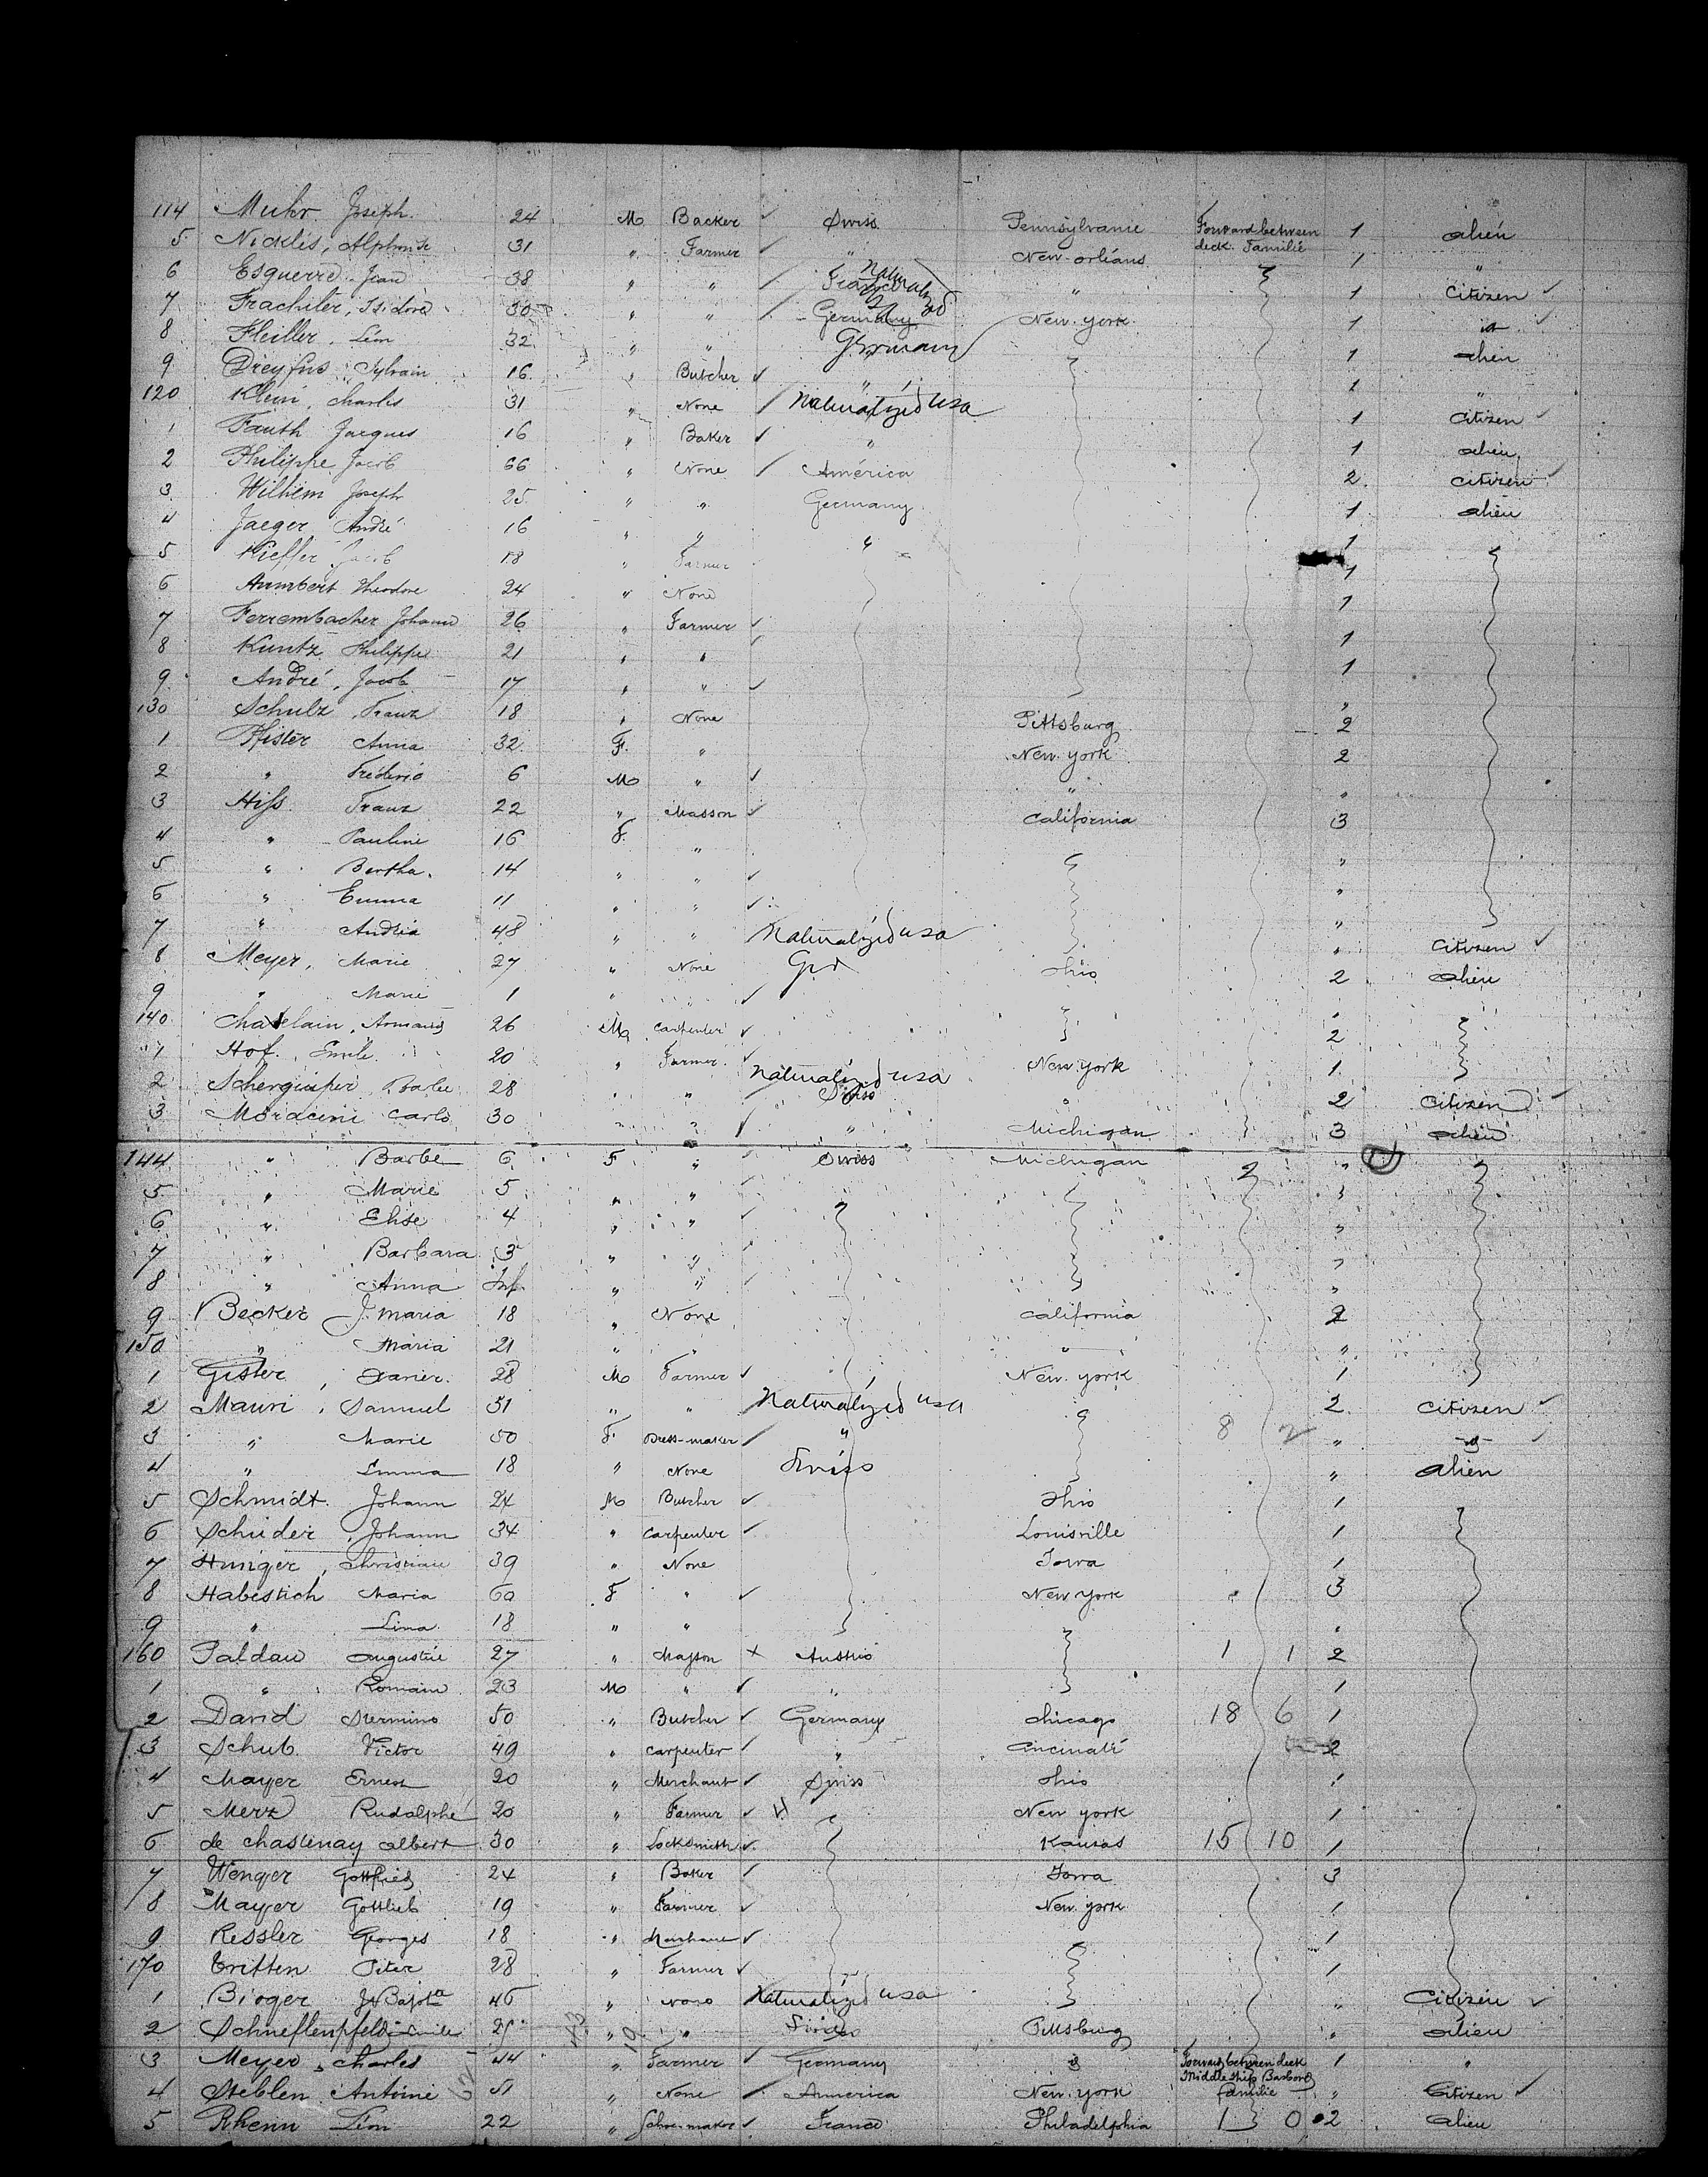 114 Muhr Joseph. 24 M Backer ✓ Swiss Pennsylvanie Forward between deck. Familie 1 alien
5 Nicklés, Alphonse 31 " Farmer ✓ " New-orléans 1 "
6 Esquerré Jean 38 " " / France Naturalized " 1 Citizen ✓
7 Frachiler, Isidore 30 " " / Germany New. york 1 ✓
8 Fleiller. Léon 32 " " Germany 1 alien
9 Dreyfus Sylvain 16 " Butcher ✓ " 1 "
120 Klein, charles 31 " None / Naturalized USA 1 Citizen ✓
1 Fauth Jacques 16 " Baker ✓ " 1 alien
2 Philippe Jacob 66 " None / América 2 citizen ✓
3 Wilhem Joseph 25 " " Germany 1 alien
4 Jaeger André 16 " " " 1
5 Kieffer Jacob 18 " Farmer 1
6 Humbert Theodore 24 " None 1
7 Ferrembacher Johann 26 " Farmer ✓ 1
8 Kuntz Philippe 21 " " ✓ 1
9 André, Jacob 17 " " ✓ "
130 Schulz, Franz 18 " None Pittsburg 2
1 Pfister Anna 32 F. " New. york 2
2 " Fréderic 6 M " ✓ " "
3 Hiss Franz 22 " Masson ✓ California 3
4 " Pauline 16 F. " "
5 " Bertha. 14 " " ✓ "
6 " Emma 11 " " ✓ "
7 " 48 " " Naturalized USA " Citizen ✓
8 Meyer, Marie 27 " None Ger Ohio 2 alien
9 " Marie 1 " " ✓ "
140 Chatelain, Armand 26 M Carpenter ✓ 2
1 Hof. Emile. 20 " Farmer ✓ New york 1
2 28 " " / Naturalized USA Swiss " 2 Citizen ✓
3 Moracini Carlo 30 " " ✓ " Michigan 3 alien
144 " Barbe 6 F " Swiss Michigan "
5 " Marie 5 " " "
6 " Elise 4 " " ✓ "
7 " Barbara 3 " " "
8 " Anna Inf. " " "
9 Becker J. Maria 18 " None California 2
150 " Maria 21 " " " "
1 Gister, Xavier. 28 M Farmer ✓ New. york 1
2 Mauri, Samuel 51 " " / Naturalized USA 2 Citizen ✓
3 " Marie 50 F. Dress-maker ✓ " 8 2 " ✓
4 " Emma 18 " None Swiss " alien
5 Schmidt. Johann 24 M Butcher ✓ Ohio 1
6 Schider, Johann 34 " Carpenter ✓ Louisville 1
7 Huniger, Christian 39 " None Iowa 1
8 Habestich Maria 60 F " ✓ New york 3
9 " Lina 18 " " "
160 Paldau Augustie 27 " Masson × Austrio 1 1 2
1 " Romain 23 M " ✓ " 1
2 David 50 " Butcher ✓ Germany Chicago 18 6 1
3 Schub Victor 49 " Carpenter ✓ " Cincinati 2
4 Mayer Ernest 20 " Merchant ✓ Swiss Ohio 1
5 Merz Rudolphe 20 " Farmer ✓ New york 1
6 de chastenay Albert 30 " Locksmith ✓ Kansas 15 10 1
7 Wenger Gottfried 24 " Baker ✓ Iowa 3
8 Mayer Gottlieb 19 " Farmer ✓ New. york 1
9 Kessler Georges 18 " ✓ 1
170 Tritten Péter 28 " Farmer ✓ 1
1 Bioger 46 " None Naturalized USA " Citizen ✓
2 Emile " " Swiss Pittsburg " alien
3 Meyer, Charles 44 " Farmer ✓ Germany Forward between deck 1 "
4 Steblen Antoine 51 " None / America New. york Middle Ship familie " Citizen ✓
5 Rhenn Léon 22 " Schoe-maker ✓ France Philadelphia 1 0 2 alien